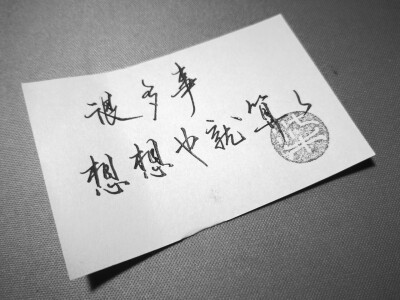 很多事
想想也就算了